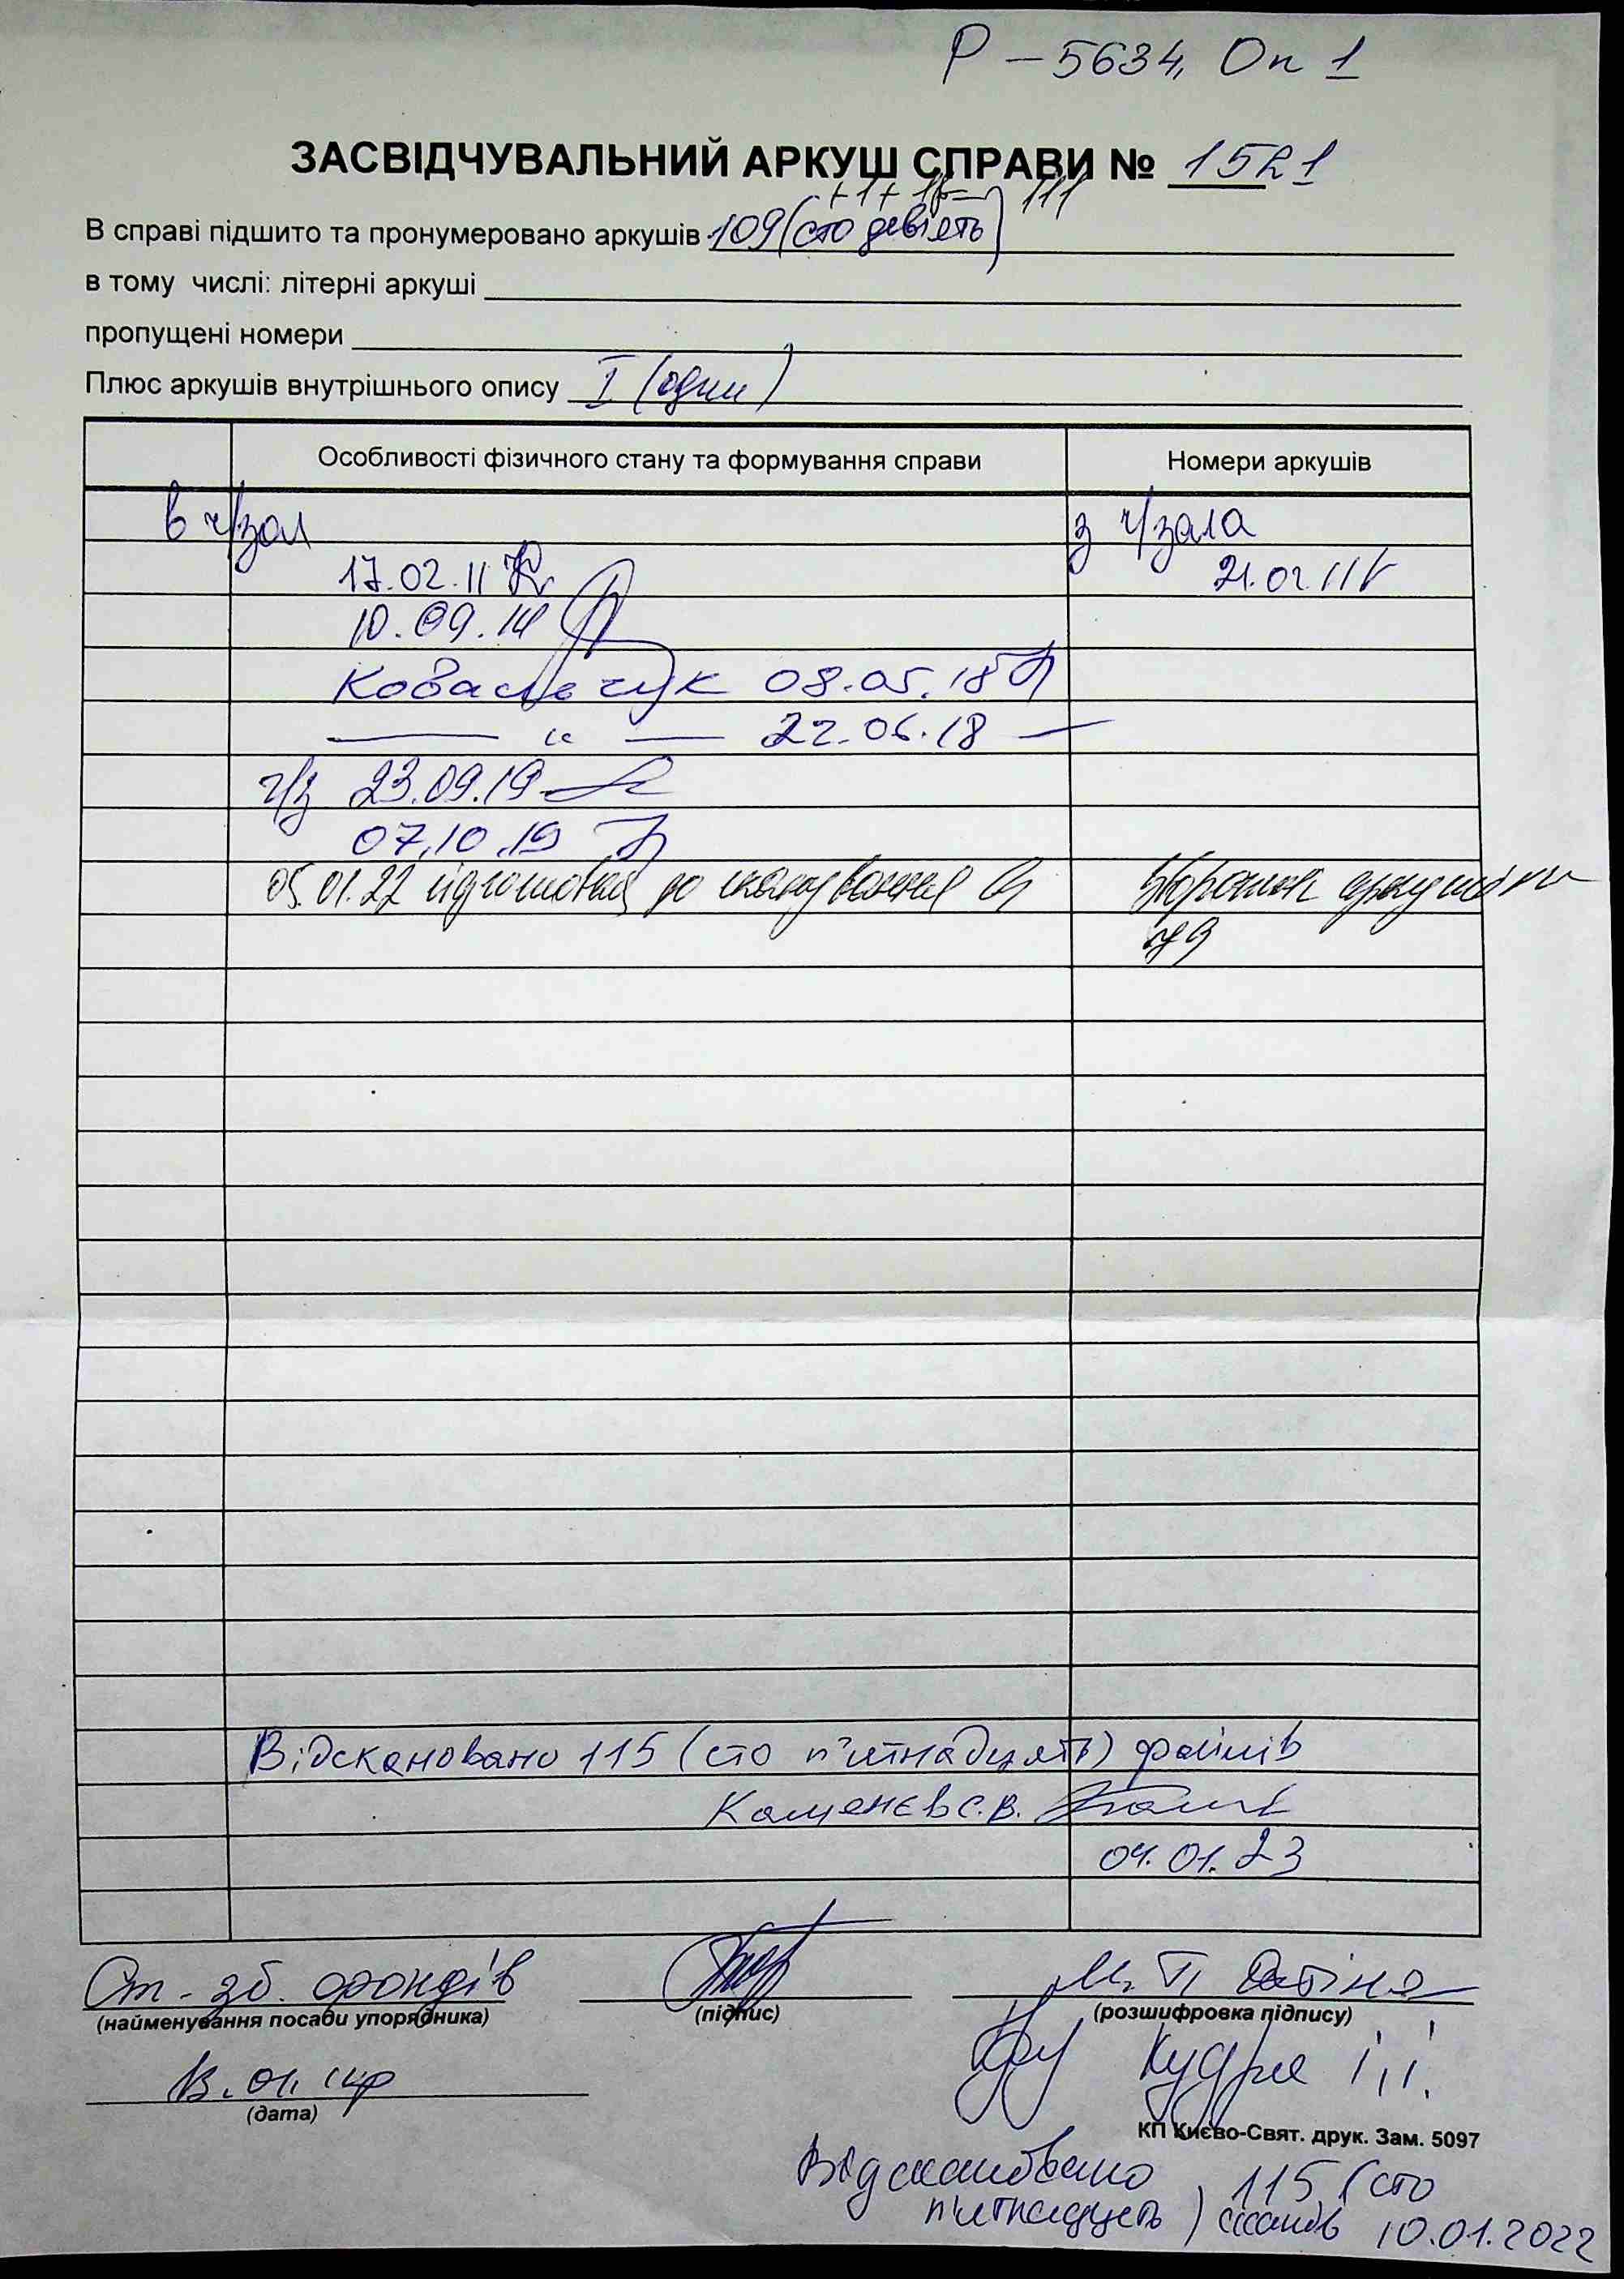 Р – 5634, Оп 1
ЗАСВІДЧУВАЛЬНИЙ АРКУШ СПРАВИ № 1521
+1+1= 111
В справі підшито та пронумеровано аркушів 109 (сто дев'ять)
в тому числі: літерні аркуші
пропущені номери
Плюс аркушів внутрішнього опису І (один)
Особливості фізичного стану та формування справи Номери аркушів
в ч/зал з ч/зала
17.02.11 21.02.11
10.09.14
Ковальчук 08.05.18
— " — 22.06.18 —
ч/з 23.09.19
07.10.19
05.01.22 до сканування
Відскановано 115 (сто п'ятнадцять) файлів
Каменєв С.В.
04.01.23
Ст. зб. фондів М. П.
(найменування посади упорядника) (підпис) (розшифровка підпису)
Кудря І.І.
(дата)
КП Києво-Свят. друк. Зам. 5097
Відскановано 115 (сто
п'ятнадцять) сканів 10.01.2022